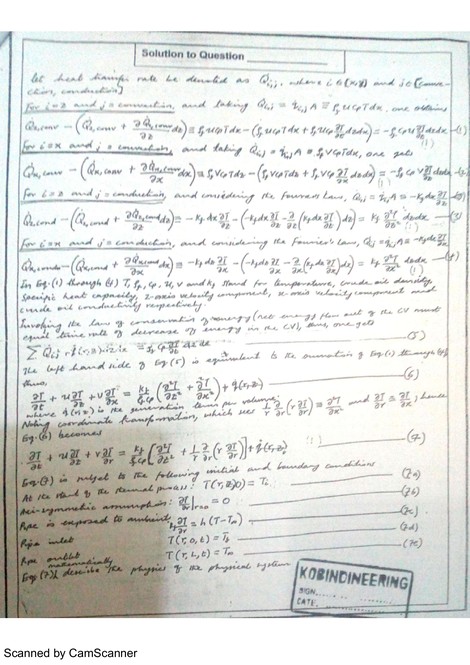 Solution to Question
let heat transfer rate be denoted as Q̇i,j, where i ∈ (x,z) and j ∈ [convec-
ction, conduction]
For i=z and j = convection, and taking Q̇i,j = q̇i,j A ≡ ρ u Cp T dx, one obtains
Q̇z,conv − (Q̇z,conv + ∂Q̇z,conv/∂z dz) ≡ ρ u Cp T dx − (ρ u Cp T dx + ρ u Cp ∂T/∂z dz dx) = −ρ Cp u ∂T/∂z dz dx —(1)
For i=x and j = convection, and taking Q̇i,j = q̇i,j A ≡ ρ v Cp T dz, one gets
Q̇x,conv − (Q̇x,conv + ∂Q̇x,conv/∂x dx) ≡ ρ v Cp T dz − (ρ v Cp T dz + ρ v Cp ∂T/∂x dz dx) = −ρ Cp v ∂T/∂x dz dx —(2)
For i=z and j=conduction, and considering the Fourier's Law,
Q̇z,cond − (Q̇z,cond + ∂Q̇z,cond/∂z dz) = —(3)
For i=x and j=conduction, and considering the Fourier's Law,
Q̇x,cond − (Q̇x,cond + ∂Q̇x,cond/∂x dx) = —(4)
In Eq.(1) through (4) T, ρ, Cp, u, v and kf stand for temperature, crude oil density,
specific heat capacity, z-axis velocity component, x-axis velocity component and
crude oil conductivity respectively
Invoking the law of conservation of energy (net energy flow out of the CV must
equal time rate of decrease of energy in the CV), thus, one gets
(5)
The left hand side of Eq (5) is equivalent to the summation of Eq.(1) through Eq(4)
thus,
∂T/∂t + u ∂T/∂z + v ∂T/∂x = kf/ρCp (∂²T/∂z² + ∂²T/∂x²) + q̇(r,z) (6)
where q̇(r,z) is the generation term per volume
Noting coordinate transformation, which sees 1/r ∂/∂r (r ∂T/∂r) ≡ ∂²T/∂x² and ∂T/∂r ≡ ∂T/∂x; hence
Eq.(6) becomes
∂T/∂t + u ∂T/∂z + v ∂T/∂r = kf/ρCp [∂²T/∂z² + 1/r ∂/∂r (r ∂T/∂r)] + q̇(r,z) (7)
Eq.(7) is subject to the following initial and boundary conditions
At the start of the thermal process: (7a)
Axi-symmetric assumption: ∂T/∂r|r=0 = 0 (7b)
Pipe is exposed to ambient, kf ∂T/∂r = h(T−T∞) (7c)
Pipe inlet T(r,0,t) = (7d)
Pipe outlet T(r,L,t) = (7e)
Eqn (7) mathematically describe the physics of the physical system
KOBINDINEERING
SIGN
DATE
Scanned by CamScanner